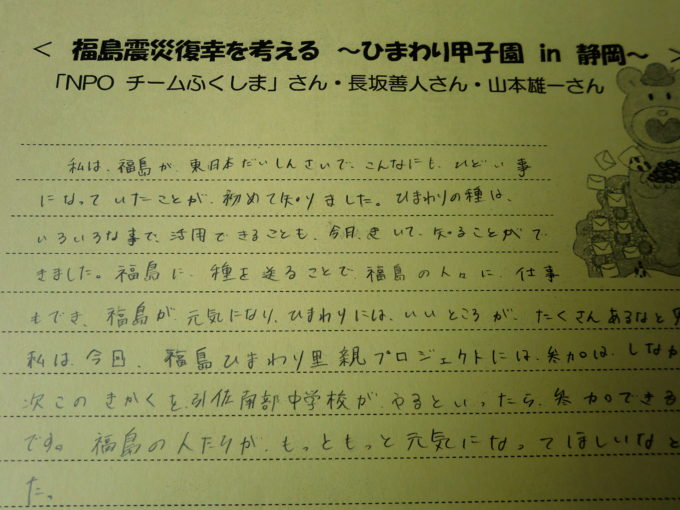 ＜ 福島震災復幸を考える ～ひまわり甲子園 in 静岡～ ＞
「NPO チームふくしま」さん・長坂善人さん・山本雄一さん
私は、福島が、東日本だいしんさいで、こんなにも、ひどい事
になっていたことが、初めて知りました。ひまわりの種は、
いろいろな事で、活用できることも、今日、きいて、知ることがで
きました。福島に、種を送ることで、福島の人々に、仕事
もでき、福島が、元気になり、ひまわりには、いいところが、たくさんあるなと
私は、今日、福島ひまわり里親プロジェクトには、参加は、しなか
次このきかくを、引佐南部中学校が、やるといったら、参加できる
です。福島の人たちが、もっともっと元気になってほしいなと
た。